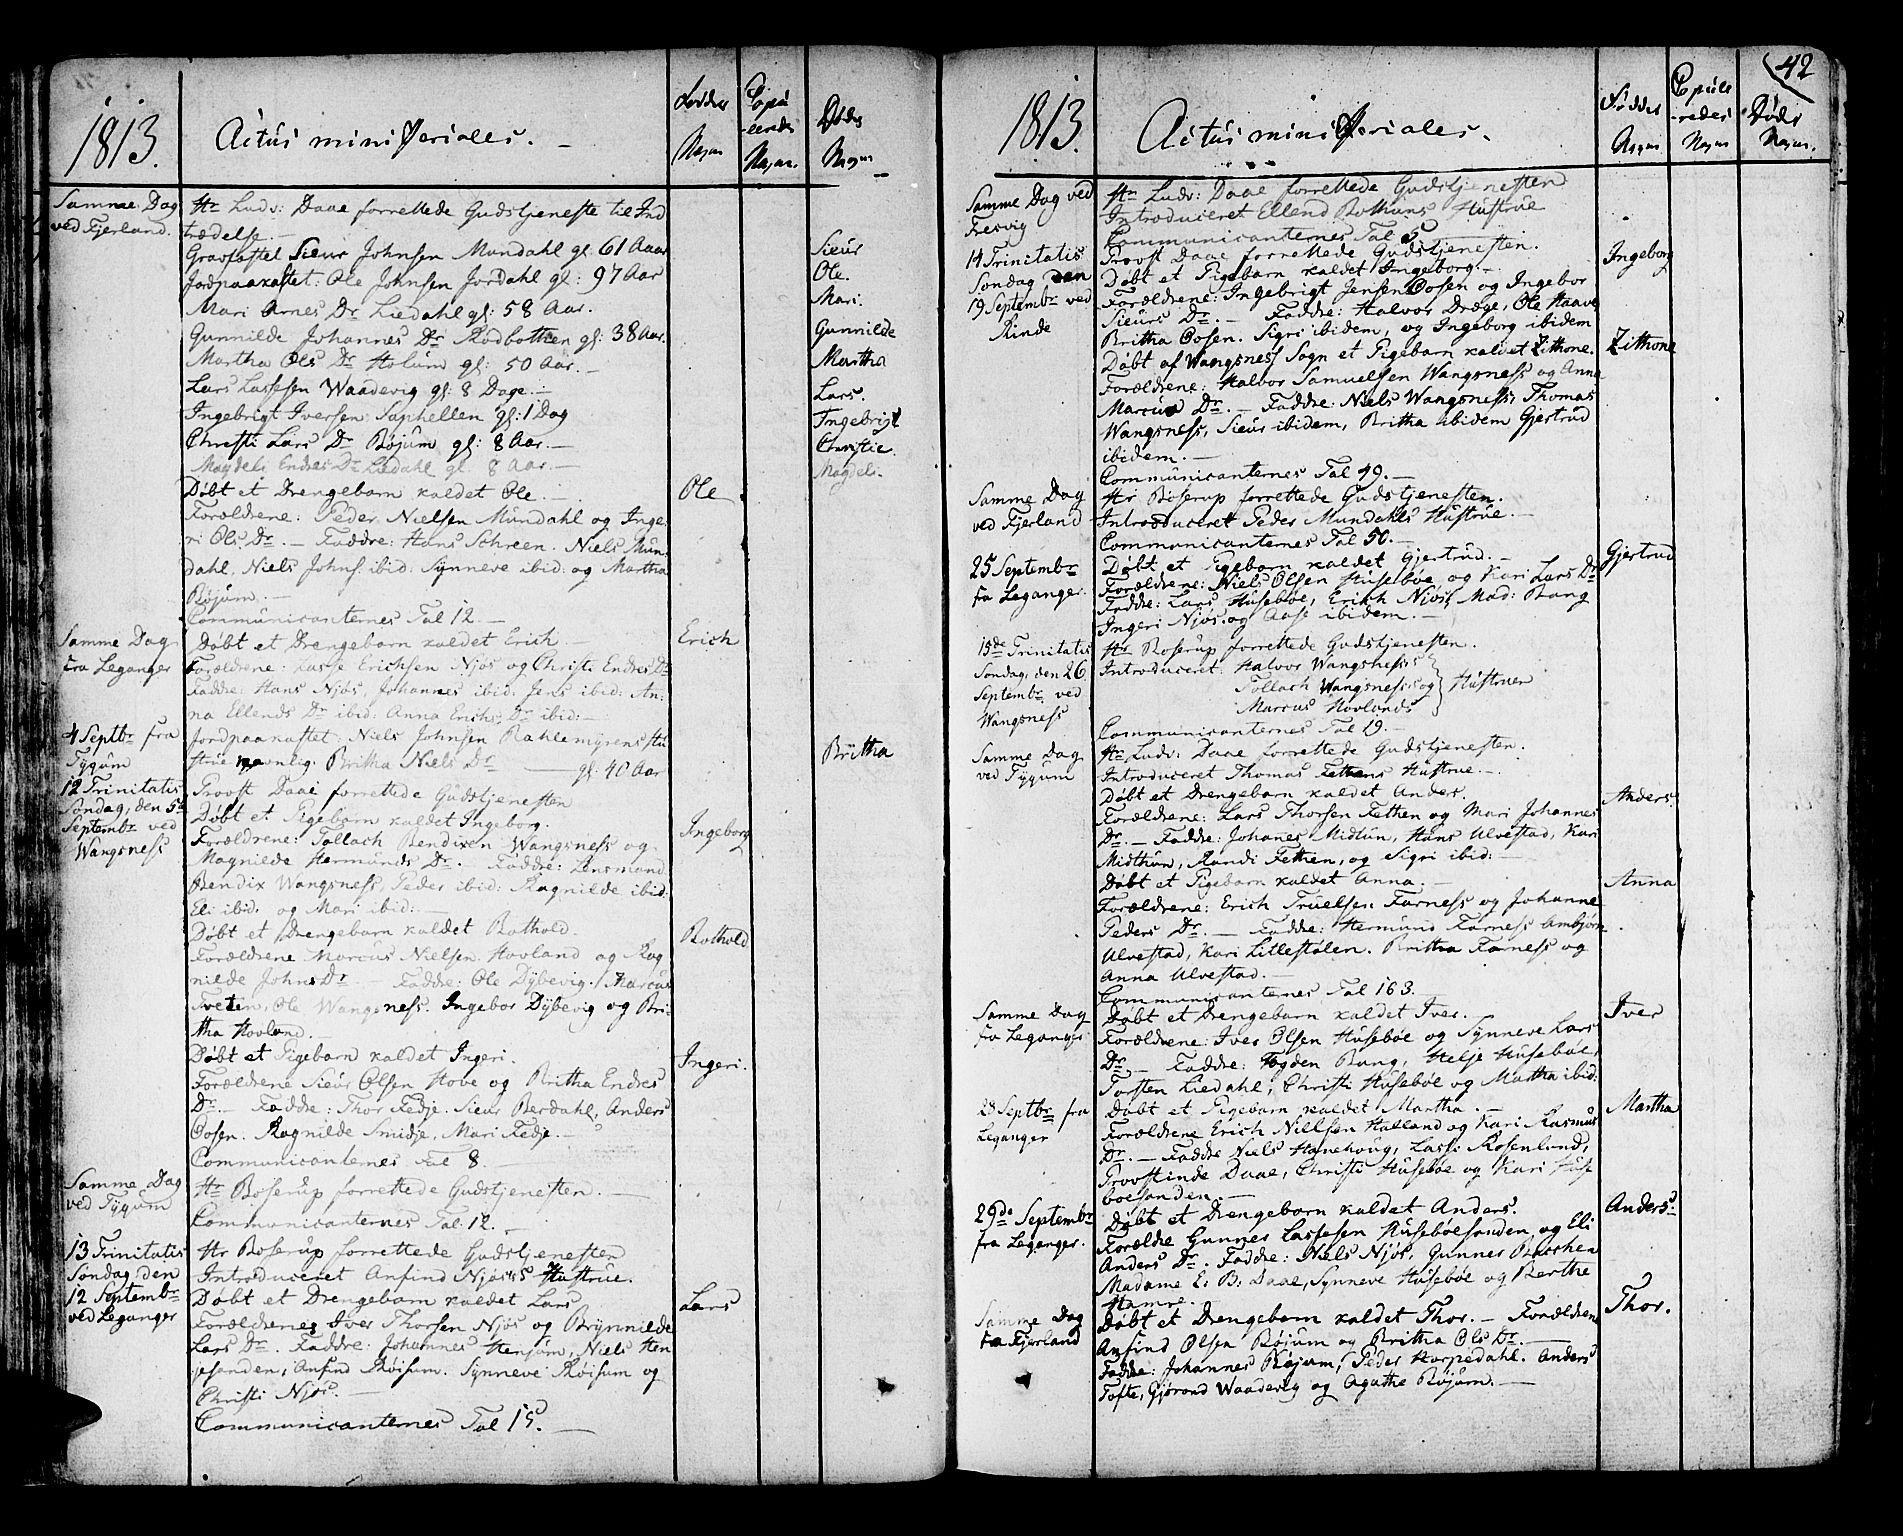 1813.
Actus ministeriales. -
Føddes Nagne
Copuleredes Nagne.
Dødes Nagne
Samme Dag
ved Fjerland.
Hr Ludv: Daae forrettede Gudstjeneste til Ind
trædelse. -
Gravfæstet Sieur Johnsen Mundahl gl: 61 Aaar
Sieur
Jordpaakastet: Ole Johnsen Jordahl gl: 97 Aar
Ole.
Mari Arnes Dr Liedahl gl: 58 Aar.
Mari.
Gunnilde Johannes Dr Rødbotten gl: 38 Aar.
Gunnilde
Martha Ols Dr Holum gl: 50 Aar. -
Martha
Lars Lassesen Waadevig gl: 8 Dage. -
Lars.
Ingebrigt Iversen Suphellen gl: 1 Dag
Ingebrigt
Christi Lars Dr Bøjum gl: 8 Aar. -
Christie
Magdeli Endres Dr Liedahl gl. 8 Aar. -
Magdeli.
Døbt et Drengebarn kaldet Ole. -
Ole
Forældrene: Peder Nielsen Mundahl og Inge-
ri Ols Dr. - Faddre: Hans Schreen. Niels Mun-
dahl, Niels Johns. ibid: Synneve ibid: og Martha
Bøjum. -
Communicanternes Tal 12. -
Samme Dag
fra Leganger
Døbt et Drengebarn kaldet Erich
Erich
Forældrene: Lasse Erichsen Njøs og Christi Endres Dr
Faddre: Hans Njøs, Johannes ibid: Jens ibid: An-
na Ellends Dr ibid: Anna Erichs Dr ibid: -
4 Septbr fra
Tygum
Jordpaakastet: Niels Johnsen Rahlemyrens Hu-
strue navnlig. Britha Niels Dr gl. 40 Aar
Britha
12 Trinitatis
Søndag, den 5te
Septembr ved
Wangsness
Provst Daae forrettede Gudstjenesten
Døbt et Pigebarn kaldet Ingeborg.
Ingeborg
Forældrene: Tollach Bendixen Wangsness og
Magnilde Hermunds Dr. - Faddre: Lensmand
Bendix Wangsness, Peder ibid: Ragnilde ibid:
Eli ibid. og Mari ibid: -
Døbt et Drengebarn kaldet Bothold.
Bothold
Forældrene Marcus Nielsen Hovland og Rag
nilde Johns Dr. - Faddre: Ole Dybevig. Marcus
Tveten, Ole Wangsness. Ingebor Dybevig og Bri-
tha Hovland.
Døbt et Pigebarn kaldet Ingeri.
Ingeri.
Forældrene Sieur Olsen Hove og Britha Endres
Dr. - Faddre: Thor Fedje. Sieur Berdahl, Anders
Oosen. Ragnilde Smidje, Mari Fedje. -
Communicanternes Tal 8.
Samme Dag
ved Tygum
Hr Boserup forrettede Gudstjenesten. -
Communicanternes Tal: 12. -
13 Trinitatis
Søndag den
12 Septembr
ved Leganger
Hr Boserup forrettede Gudstjenesten
Introduceret Anfind Njøses Hustrue.
Døbt et Drengebarn kaldet Lars
Lars
Forældrenes Iver Thorsen Njøs og Brynnilde
Lars Dr. Faddre: Johannes Henjum, Niels Hen
jesanden, Anfind Røisum. Synneve Røisum og
Christi Njøs. -
Communicanternes Tal 15. -
42
1813.
Actus ministeriales.
Føddes Nagne
Copuleredes Nagne
Dødes Nagne.
Samme Dag ved
Fresvig
Hr Ludv: Daae forrettede Gudstjenesten
Introduceret Ellend Bothuns Hustrue
Communicanternes Tal 5 -
14 Trinitatis
Søndag den
19 Septembr ved
Rinde
Provst Daae forrettede Gudstjenesten.
Døbt et Pigebarn kaldet Ingeborg. -
Ingeborg
Forældrene: Ingebrigt Jensen Oosen og Ingebor
Sieurs Dr. - Faddre: Halvor Drege, Ole Haave
Britha Oosen. Sigri ibidem, og Ingeborg ibidem
Døbt af Wangsness Sogn et Pigebarn kaldet Zithone.
Zithone
Forældrene: Halvor Samuelsen Wangsness og Anna
Marcus Dr. - Faddre: Niels Wangsness, Thomas
Wangsness, Sieur ibidem, Britha ibidem Gjertrud
ibidem. -
Communicanternes Tal 49. -
Samme Dag
ved Fjerland
Hr Boserup forrettede Gudstjenesten.
Introduceret Peder Mundahls Hustrue. -
Communicanternes Tal 50. -
25 Septembr
fra Leganger
Døbt et Pigebarn kaldet Gjertrud. -
Gjertrud
Forældrene: Niels Olsen Husebøe og Kari Lars Dr
Faddre: Lars Husebøe, Erich Njøs, Mad: Bang
Ingeri Njøs og Aase ibidem. -
15de Trinitatis
Søndag, den 26
Septembr ved
Wangsness
Hr Boserup forrettede Gudstjenesten.
Introduceret: Halvor Wangsness
Tollach Wangsness og } Hustruer
Marcus Hovlands
Communicanternes Tal 19. -
Samme Dag
ved Tygum
Hr Ludv: Daae forrettede Gudstjenesten.
Introduceret Thomas Fethens Hustrue. -
Døbt et Drengebarn kaldet Anders.
Anders
Forældrene: Lars Thorsen Fethen og Mari Johannes
Dr. - Faddre: Johanes Midtun, Hans Ulvestad, Kari
Midthun, Randi Fethen, og Sigri ibid: -
Døbt et Pigebarn kaldet Anna. -
Anna
Forældrene: Erich Truelsen Farness og Johanne
Peders Dr. - Faddre: Hermund Farness Ambjørn
Ulvestad, Kari Litlestølen. Britha Farness og
Anna Ulvestad. -
Communicanternes Tal 163.
Samme Dag
fra Leganger
Døbt et Drengebarn kaldet Iver.
Iver
Forældrene: Iver Olsen Husebøe og Synneve Lars
Dr. - Faddre: Fogden Bang, Helje Husebøe,
Torsten Liedahl, Christi Husebøe og Martha ibid:
28 Septbr fra
Leganger
Døbt et Pigebarn kaldet Martha. -
Martha
Forældrene Erich Nielsen Halland og Kari Rasmus
Dr. - Faddre Niels Hanehoug, Lasse Rosenlund,
Provstinde Daae, Christi Husebøe og Kari Huse
bøesanden. -
29de Septembr
fra Leganger.
Døbt et Drengebarn kaldet Anders.
Anders
Forældre Gunner Lassesen Husebøesanden og Eli
Anders Dr. Faddre: Niels Njøs, Gunner Backhen
Madame E: B: Daae, Synneve Husebøe og Berthe
Hamre. -
Samme Dag
fra Fjerland
Døbt et Drengebarn kaldet Thor. - Forældrene
Thor.
Anfind Olsen Bøjum og Britha Ols Dr. -
Faddre: Johannes Bøjum, Peder Horpedahl. Anders
Tofte, Gjørond Waadevig og Agathe Bøjum. -